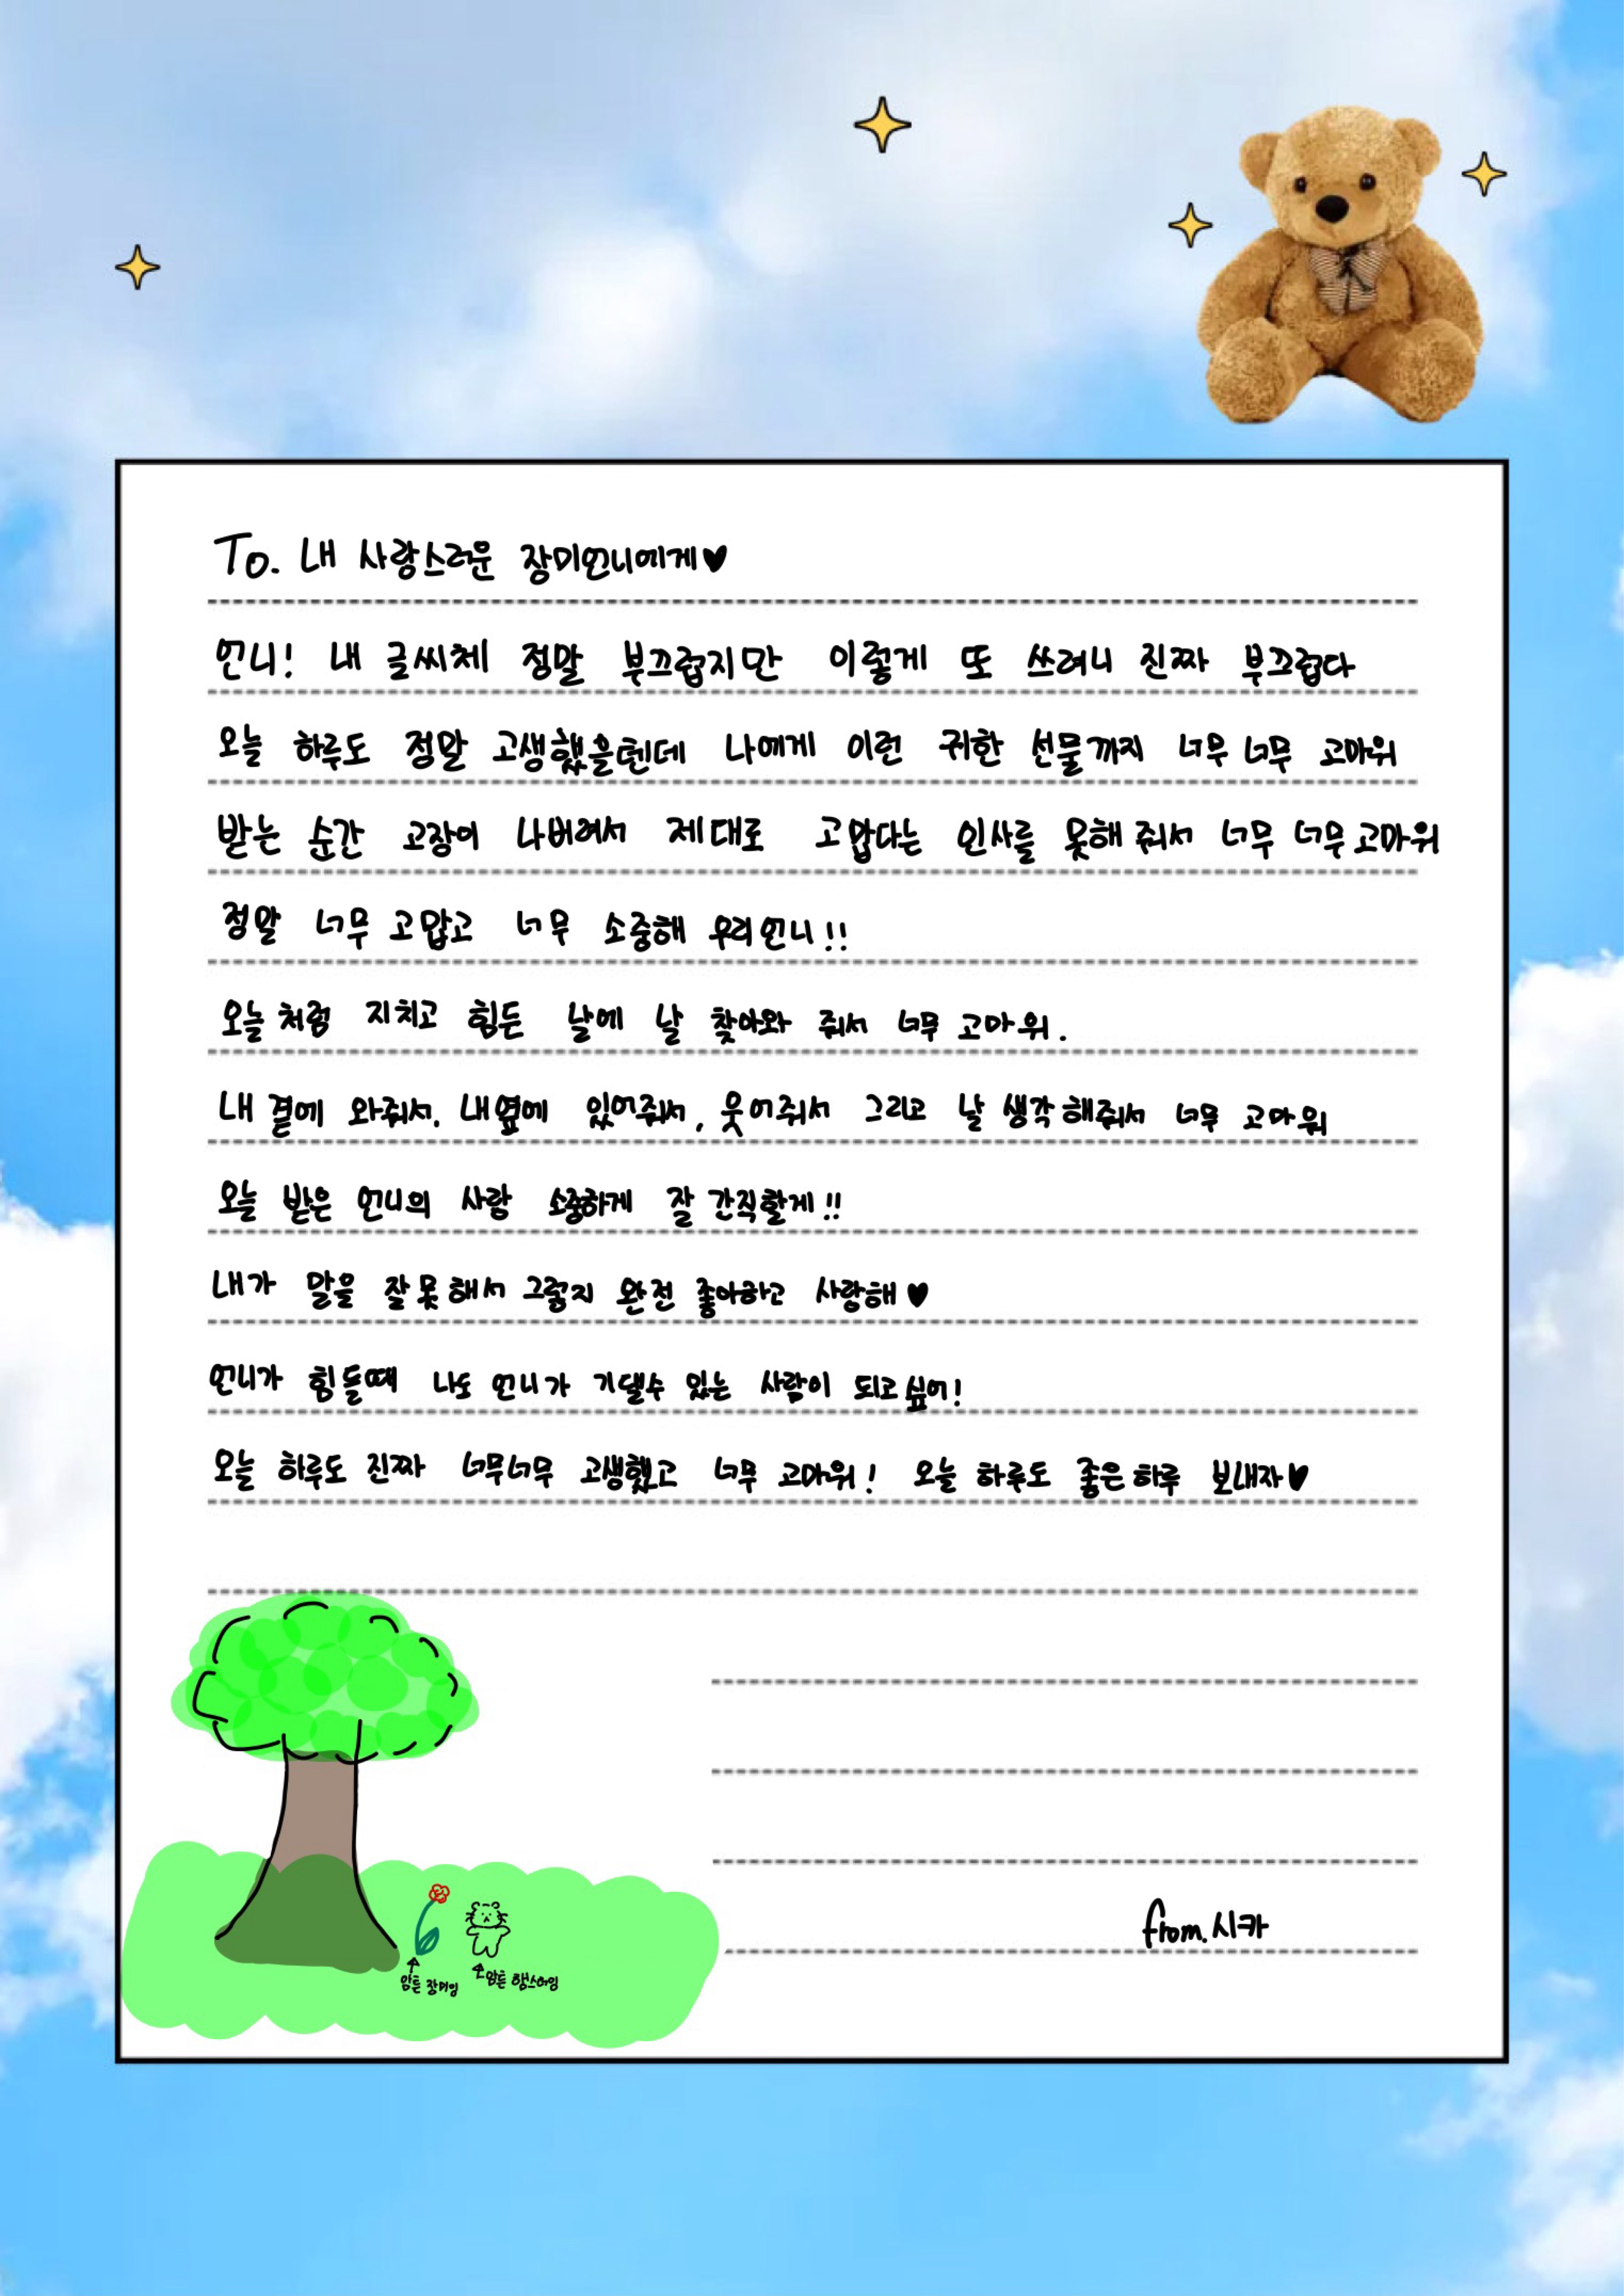 To. 내 사랑스러운 장미언니에게♥
언니! 내 글씨체 정말 부끄럽지만 이렇게 또 쓰려니 진짜 부끄럽다
오늘 하루도 정말 고생했을텐데 나에게 이런 귀한 선물까지 너무 너무 고마워
받는 순간 고장이 나버려서 제대로 고맙다는 인사를 못해 줘서 너무 너무 고마워
정말 너무 고맙고 너무 소중해 우리언니!!
오늘처럼 지치고 힘든 날에 날 찾아와 줘서 너무 고마워.
내 곁에 와줘서. 내옆에 있어줘서, 웃어줘서 그리고 날 생각해줘서 너무 고마워
오늘 받은 언니의 사랑 소중하게 잘 간직할게!!
내가 말을 잘못해서 그렇지 완전 좋아하고 사랑해♥
언니가 힘들때 나도 언니가 기댈수 있는 사람이 되고싶어!
오늘 하루도 진짜 너무너무 고생했고 너무 고마워! 오늘 하루도 좋은하루 보내자♥
from. 시카
암튼 장미임
암튼 햄스터임